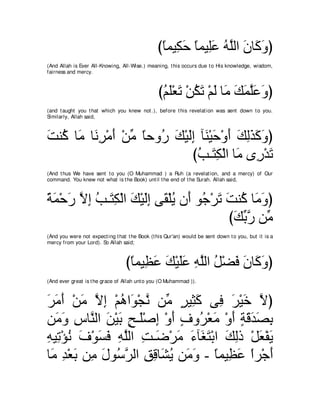 (وَكَانَ اللَّهُ عَلِيماً حَكِيماً)
(And Allah is Ever All-Knowing, All-Wise.) meaning, this occurs due to His knowledge, wisdom,
fairness and mercy.
(وَعَلَّمَكَ مَا لَمْ تَكُنْ تَعْلَمُ)
(and taught you that which you knew not.), before this revelation was sent down to you.
Similarly, Allah said,
(وَكَذَلِكَ أَوْحَيْنَآ إِلَيْكَ رُوحاً مِّنْ أَمْرِنَا مَا كُنتَ
تَدْرِى مَا الْكِتَـبُ)
(And thus We have sent to you (O Muhammad ) a Ruh (a revelation, and a mercy) of Our
command. You knew not what is the Book) until the end of the Surah. Allah said,
(وَمَا كُنتَ تَرْجُو أَن يُلْقَى إِلَيْكَ الْكِتَـبُ إِلاَّ رَحْمَةً
مِّن رَّبِّكَ)
(And you were not expecting that the Book (this Qur'an) would be sent down to you, but it is a
mercy from your Lord). So Allah said;
(وَكَانَ فَضْلُ اللَّهِ عَلَيْكَ عَظِيماً)
(And ever great is the grace of Allah unto you (O Muhammad )).
(لاَّ خَيْرَ فِى كَثِيرٍ مِّن نَّجْوَاهُمْ إِلاَّ مَنْ أَمَرَ
بِصَدَقَةٍ أَوْ مَعْرُوفٍ أَوْ إِصْلَـحٍ بَيْنَ النَّاسِ وَمَن
يَفْعَلْ ذَلِكَ ابْتَغَآءَ مَرْضَـتِ اللَّهِ فَسَوْفَ نُؤْتِيهِ
أَجْراً عَظِيماً - وَمَن يُشَاقِقِ الرَّسُولَ مِن بَعْدِ مَا